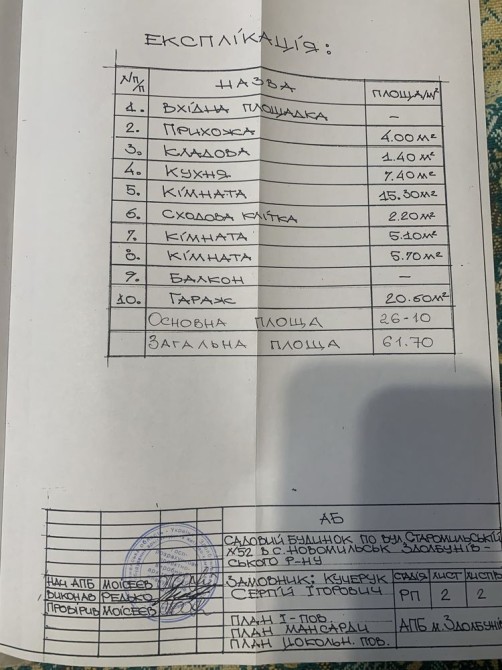 ЕКСПЛІКАЦІЯ:
№ п/п НАЗВА ПЛОЩА/М²
1. ВХІДНА ПЛОЩАДКА –
2. ПРИХОЖА 4.00 м²
3. КЛАДОВА 1.40 м²
4. КУХНЯ 7.40 м²
5. КІМНАТА 15.30 м²
6. СХОДОВА КЛІТКА 2.20 м²
7. КІМНАТА 5.10 м²
8. КІМНАТА 5.70 м²
9. БАЛКОН –
10. ГАРАЖ 20.60 м²
ОСНОВНА ПЛОЩА 26-10
ЗАГАЛЬНА ПЛОЩА 61.70
АБ
САДОВИЙ БУДИНОК ПО ВУЛ СТАРОМИЛЬСЬКІЙ
№52 В С. НОВОМИЛЬСЬК ЗДОЛБУНІВ-
СЬКОГО Р-НУ
НАЧ АПБ МОІСЕЄВ
ВИКОНАВ РЕДЬКО
ПРОВІРИВ МОІСЕЄВ
ЗАМОВНИК: КУЧЕРУК
СЕРГІЙ ІГОРОВИЧ
СТАДІЯ ЛИСТ ЛИСТІВ
РП 2 2
ПЛАН І-ПОВ.
ПЛАН МАНСАРДИ
ПЛАН ЦОКОЛЬН. ПОВ.
АПБ м. ЗДОЛБУНІВ